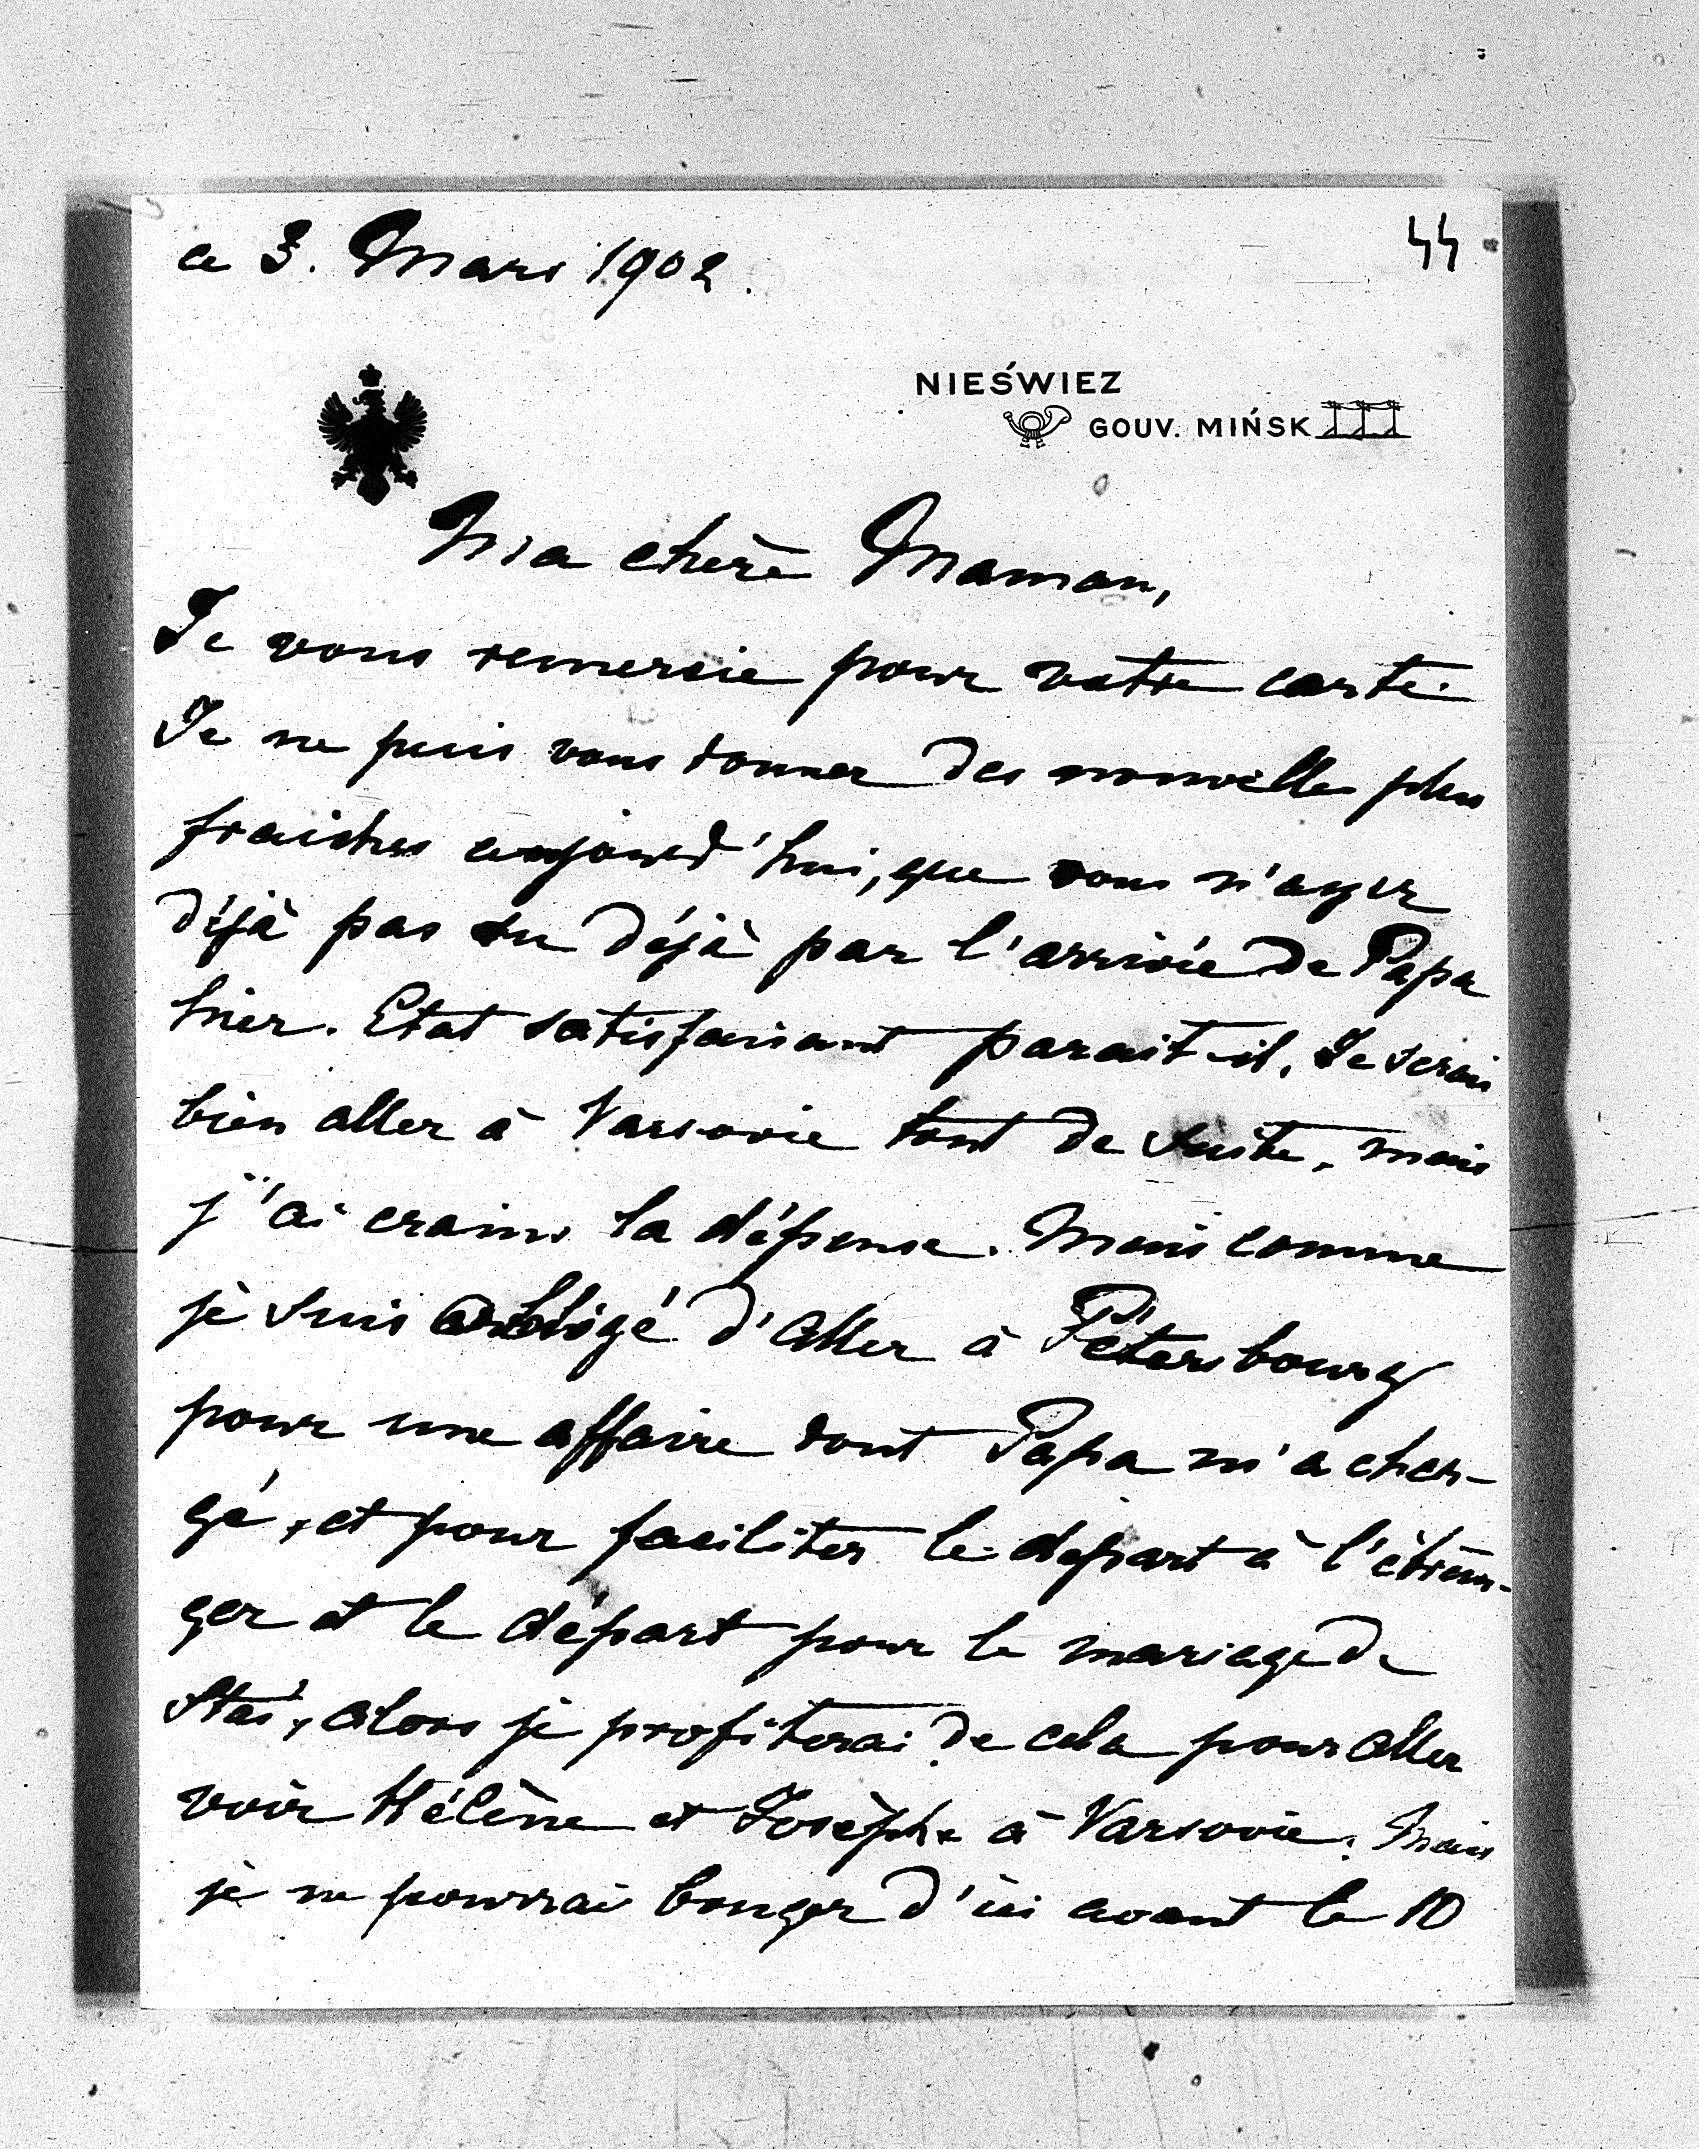 ce 3. Mars 1902.
44
NIEŚWIEZ
GOUV. MIŃSK
Ma chère Maman,
Je vous remercie pour votre carte.
Je ne puis vous donner des nouvelles plus
fraiches aujourd'hui, que vous n'ayez
déjà pas su déjà par l'arrivée de Papa
hier. Etat satisfaisant parait-il. Je serai
bien aller à Varsovie tout de suite, mais
j'ai crains la dépense. Mais comme
je suis obligé d'aller à Pétersbourg
pour une affaire dont Papa m'a char-
gé, et pour faciliter le départ à l'étran-
ger et le départ pour le mariage de
Stas, alors je profiterai de cela pour aller
voir Hélène et Josèphe à Varsovie. Mais
je ne pourrai bouger d'ici avant le 10